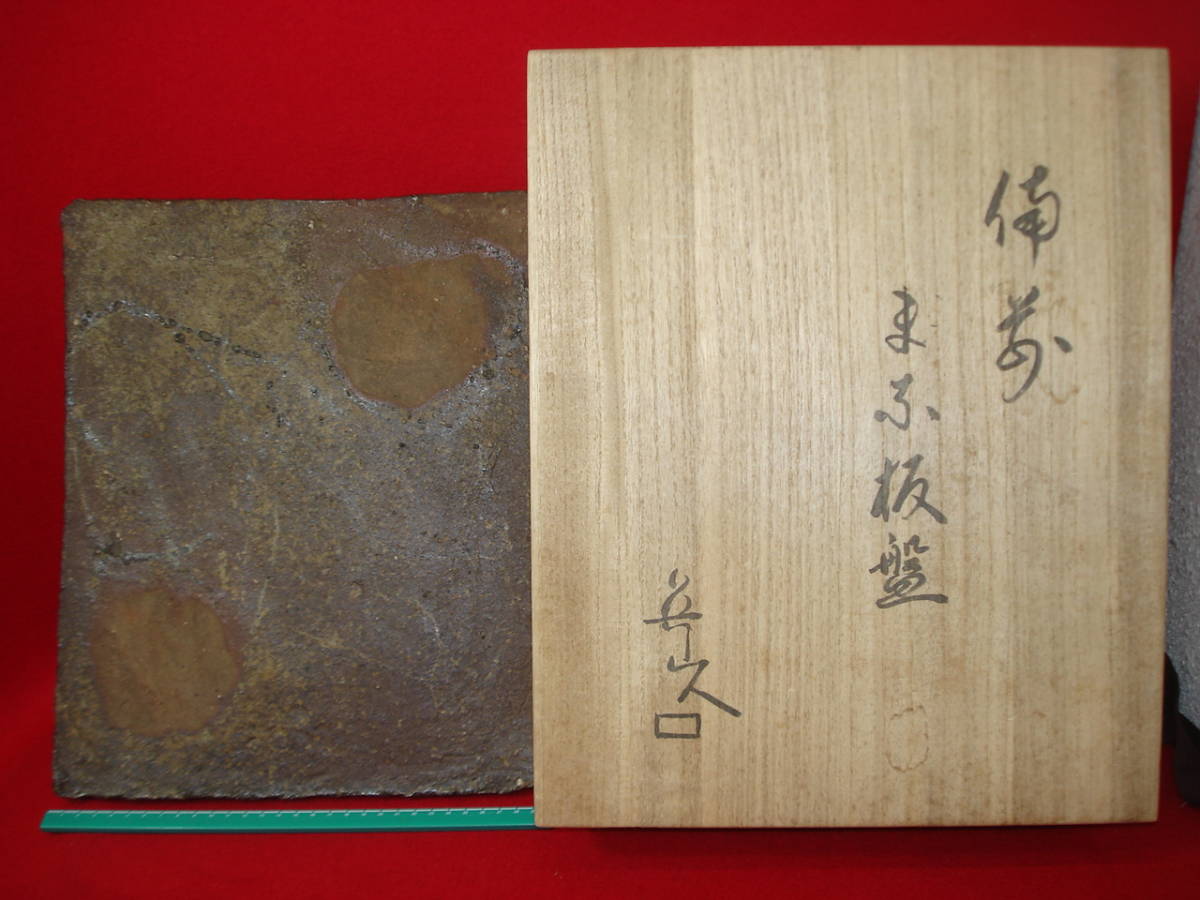 備前
まな板盤